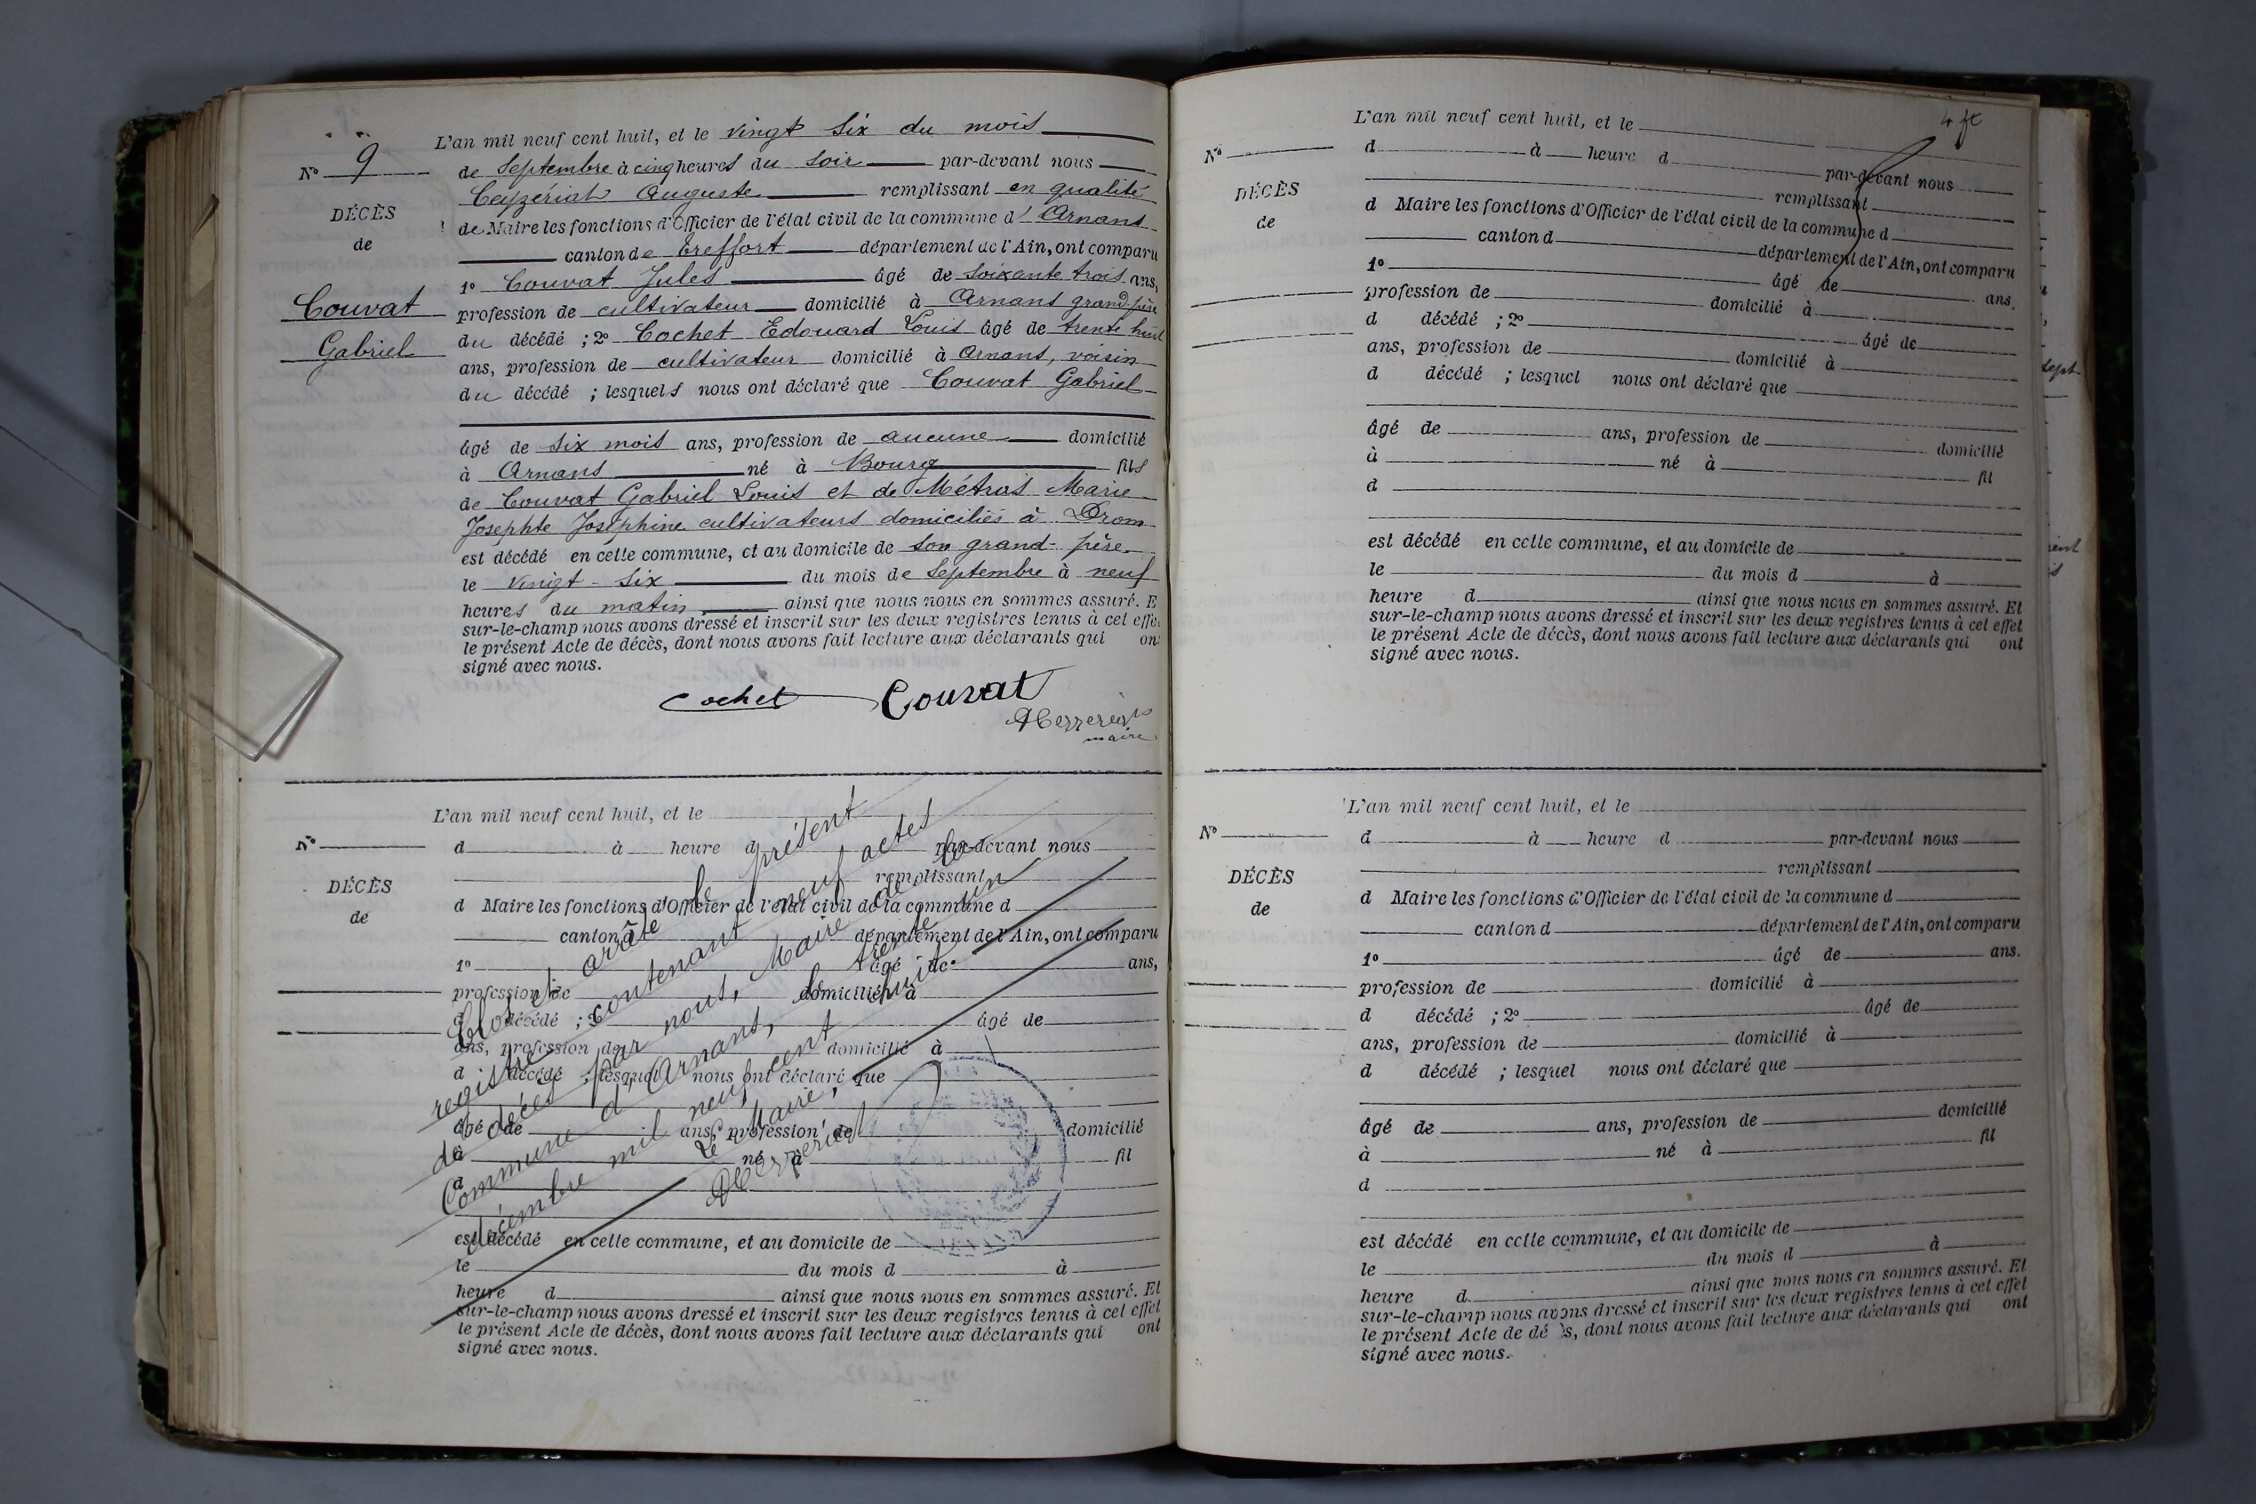 L'an mil neuf cent huit, et le vingt six du mois
N° 9
de Septembre à cinq heures du soir par-devant nous
Ceyzériat Auguste remplissant en qualité
DÉCÈS
de Maire les fonctions d'Officier de l'état civil de la commune d' Arnans
de
canton de Treffort département de l'Ain, ont comparu
1° Couvat Jules âgé de soixante trois ans,
Couvat
profession de cultivateur domicilié à Arnans grand-père
du décédé ; 2° Cochet Edouard Louis âgé de trente huit
Gabriel
ans, profession de cultivateur domicilié à Arnans, voisin
du décédé ; lesquels nous ont déclaré que Couvat Gabriel
âgé de six mois ans, profession de aucune domicilié
à Arnans né à Bourg fils
de Couvat Gabriel Louis et de Métras Marie
Josephte Joséphine cultivateurs domiciliés à Drom
est décédé en cette commune, et au domicile de son grand-père
le vingt-six du mois de Septembre à neuf
heures du matin, ainsi que nous nous en sommes assuré. E
sur-le-champ nous avons dressé et inscrit sur les deux registres tenus à cet effe
le présent Acte de décès, dont nous avons fait lecture aux déclarants qui on
signé avec nous.
Cochet Couvat
maire
L'an mil neuf cent huit, et le
N°
d à heure d par-devant nous
remplissant
DÉCÈS
d Maire les fonctions d'Officier de l'état civil de la commune d
de
canton d département de l'Ain, ont comparu
1° âgé de ans,
profession de domicilié à
d décédé ; 2° âgé de
ans, profession de domicilié à
d décédé ; lesquel nous ont déclaré que
âgé de ans, profession de domicilié
à né à fil
d
est décédé en cette commune, et au domicile de
le du mois d à
heure d ainsi que nous nous en sommes assuré. Et
sur-le-champ nous avons dressé et inscrit sur les deux registres tenus à cet effet
le présent Acte de décès, dont nous avons fait lecture aux déclarants qui ont
signé avec nous.
Clos et arrêté le présent
registre contenant neuf actes
de décès par nous, Maire de la
Commune d'Arnans, le trente un
décembre mil neuf cent huit
Le Maire,
L'an mil neuf cent huit, et le
N°
d à heure d
par-devant nous
DÉCÈS
remplissant
d Maire les fonctions d'Officier de l'état civil de la commune d
de
canton d département de l'Ain, ont comparu
1° âgé de ans,
profession de domicilié à
d décédé ; 2° âgé de
ans, profession de domicilié à
d décédé ; lesquel nous ont déclaré que
âgé de ans, profession de domicilié
à né à fil
d
est décédé en cette commune, et au domicile de
le du mois d à
heure d ainsi que nous nous en sommes assuré. Et
sur-le-champ nous avons dressé et inscrit sur les deux registres tenus à cet effet
le présent Acte de décès, dont nous avons fait lecture aux déclarants qui ont
signé avec nous.
L'an mil neuf cent huit, et le
N°
d à heure d par-devant nous
remplissant
DÉCÈS
d Maire les fonctions d'Officier de l'état civil de la commune d
de
canton d département de l'Ain, ont comparu
1° âgé de ans.
profession de domicilié à
d décédé ; 2° âgé de
ans, profession de domicilié à
d décédé ; lesquel nous ont déclaré que
âgé de ans, profession de domicilié
à né à fil
d
est décédé en cette commune, et au domicile de
le du mois d à
heure d ainsi que nous nous en sommes assuré. Et
sur-le-champ nous avons dressé et inscrit sur les deux registres tenus à cet effet
le présent Acte de dé s, dont nous avons fait lecture aux déclarants qui ont
signé avec nous.
sept